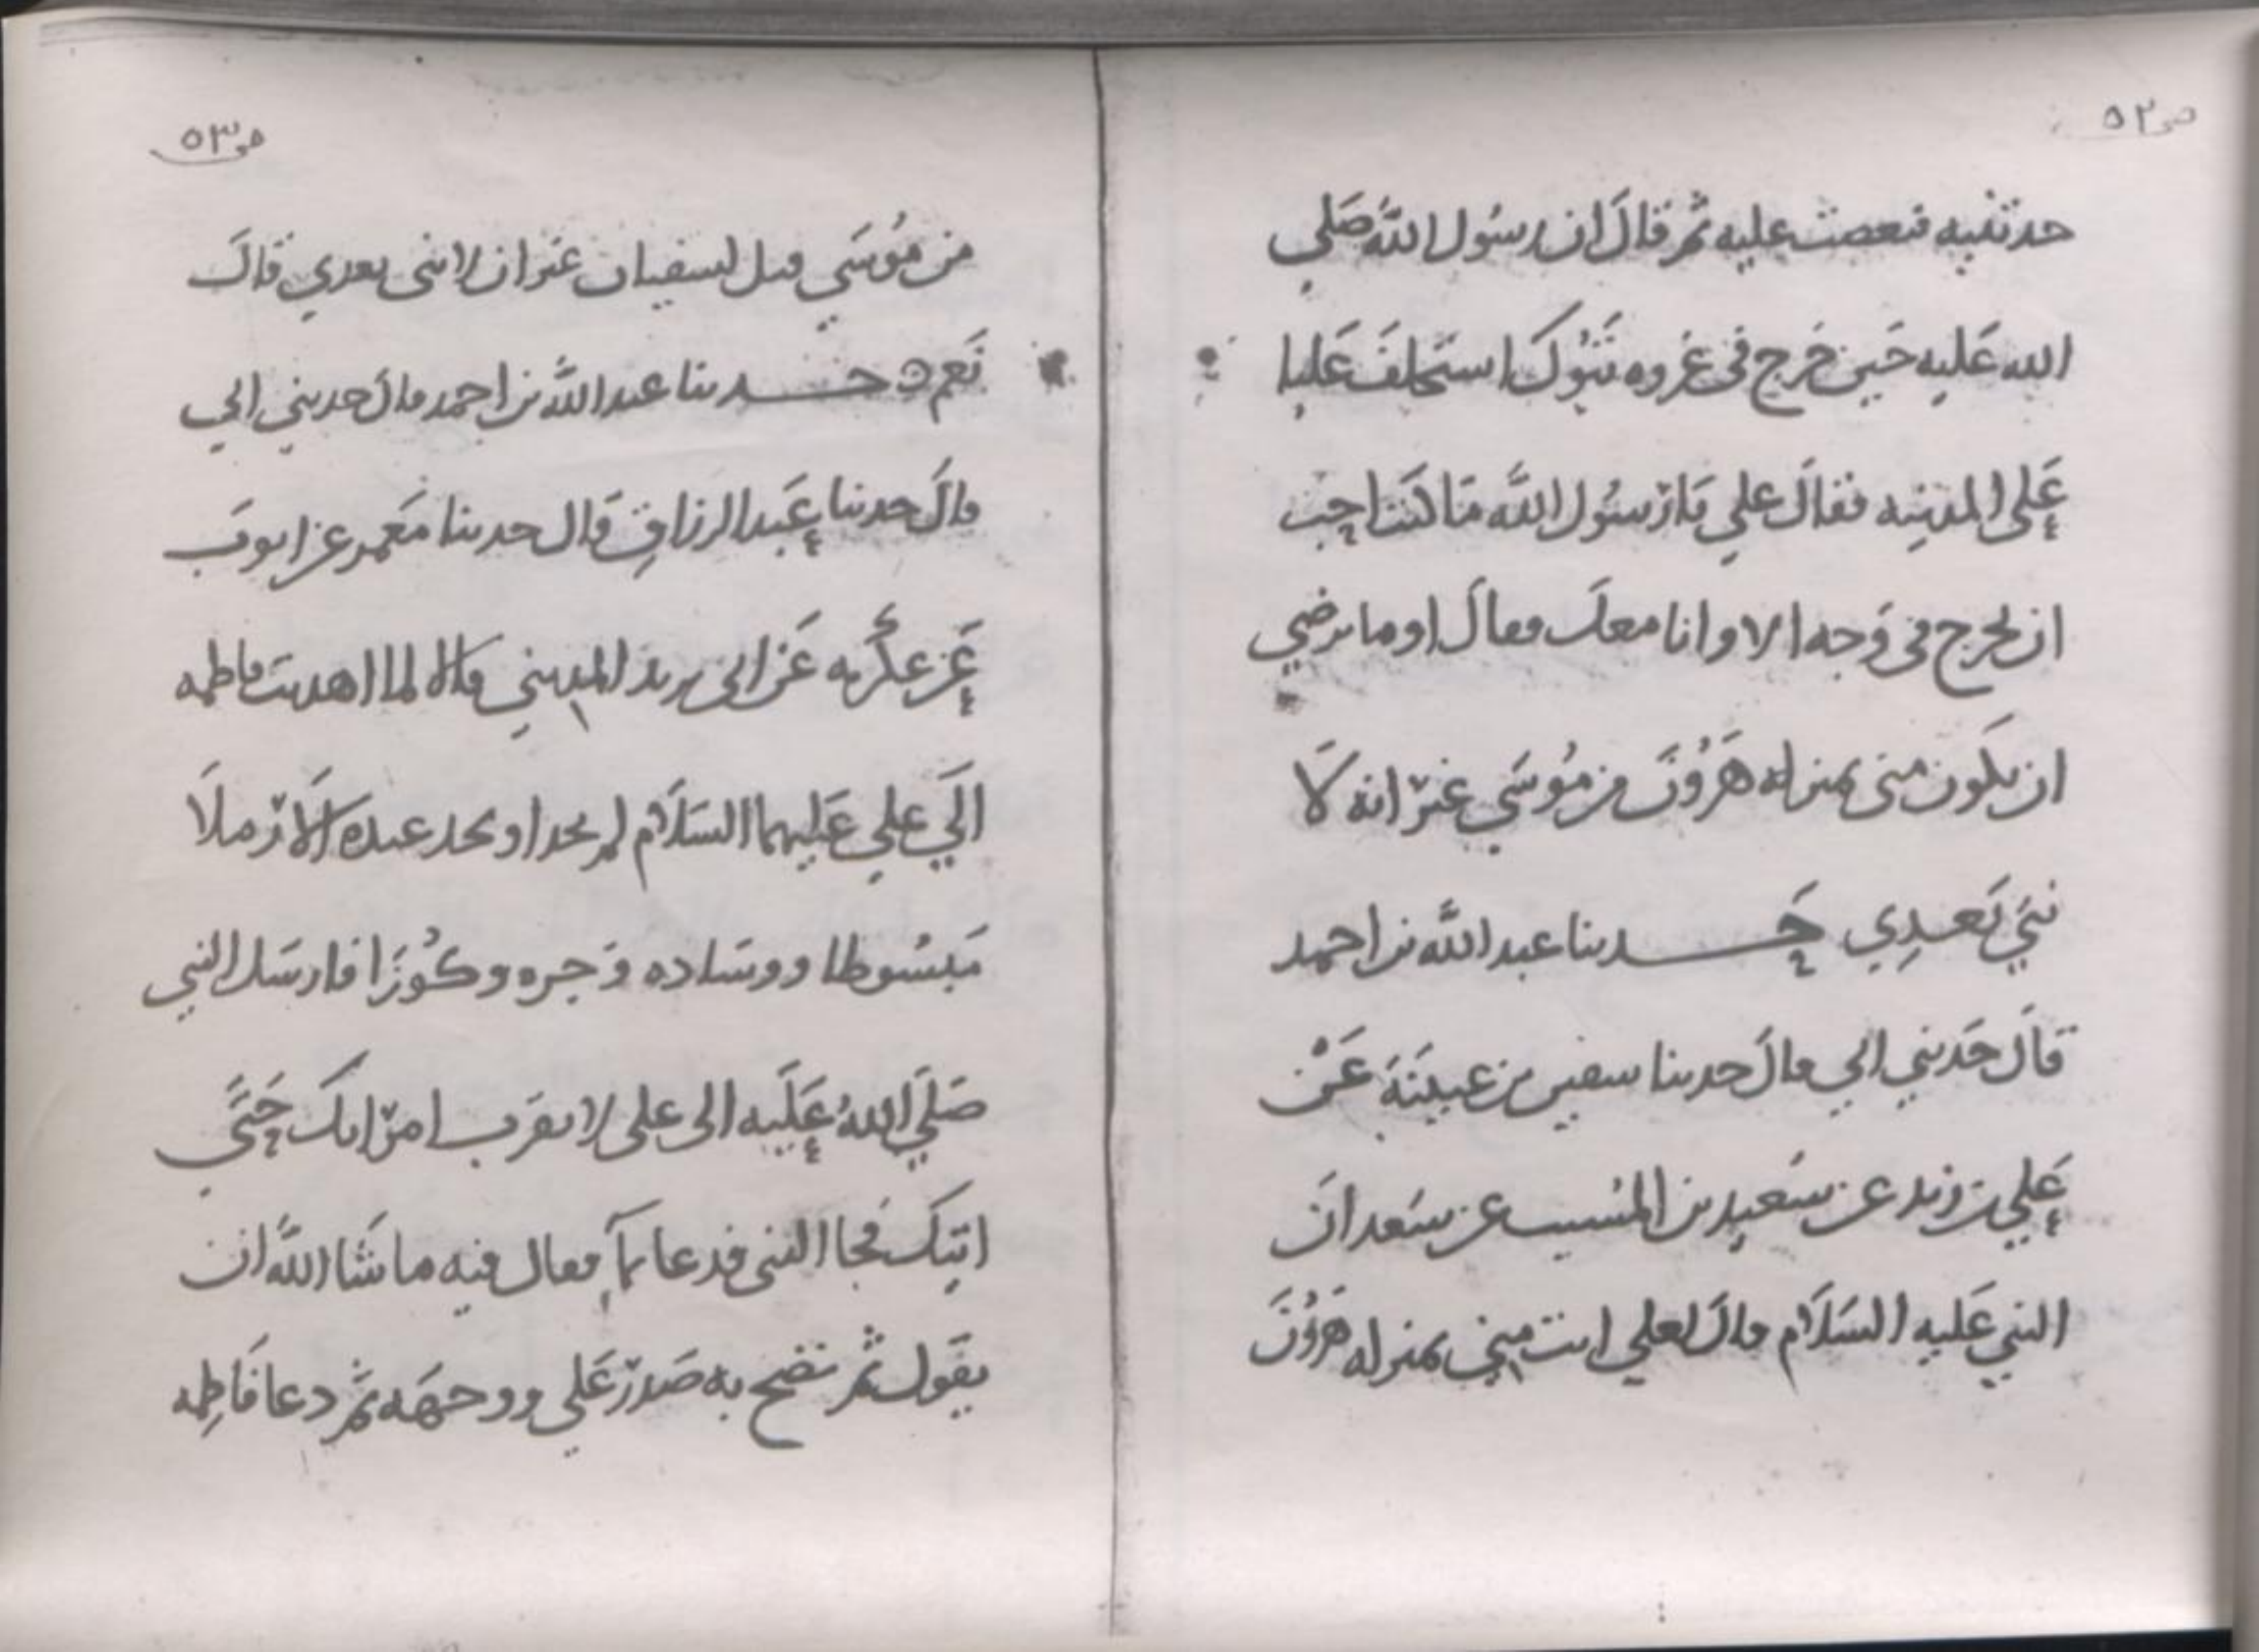 ص ٥٢
حدثنيه فغضب عليه ثم قال ان رسول الله صلى
الله عليه حين خرج في غزوه تبوك استخلف عليا
على المدينه فقال علي يا رسول الله ما كنت احب
ان تخرج في وجه الا وانا معك فقال او ما ترضي
ان تكون مني بمنزله هرون من موسي غير انه لا
نبي بعدي حدثنا عبد الله بن احمد
قال حدثني ابي قال حدثنا سفين بن عيينة عن
علي بن زيد عن سعيد بن المسيب عن سعد ان
النبي عليه السلام قال لعلي انت مني بمنزله هرون
ص ٥٣
من موسي قيل لسفيان غير ان لا نبي بعدي قال
نعم ه حدثنا عبد الله بن احمد قال حدثني ابي
قال حدثنا عبد الرزاق قال حدثنا معمر عن ايوب
عن عكرمه عن ابي يزيد المديني قال لما اهديت فاطمه
الي علي عليهما السلام لم يجد او تجد عنده الا رملا
مبسوطا ووساده وجره وكوزا فارسل النبي
صلي الله عليه الى علي لا تقرب امراتك حتي
اتيك فجا النبي فدعا بمآ فقال فيه ما شا الله ان
يقول ثم نضح به صدر علي ووجهه ثم دعا فاطمه